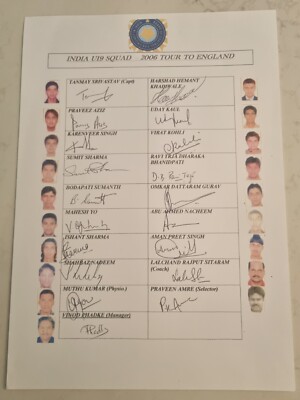 INDIA U19 SQUAD 2006 TOUR TO ENGLAND
TANMAY SRIVASTAV (Capt)
HARSHAD HEMANT KHADIWALE
PRAVEEZ AZIZ
UDAY KAUL
KARENVEER SINGH
VIRAT KOHLI
SUMIT SHARMA
RAVI TEJA DHARAKA BHANIDPATI
BODAPATI SUMANTH
OMKAR DATTARAM GURAV
MAHESH YO
ABU AHMED NACHEEM
ISHANT SHARMA
AMAN PREET SINGH
SHAHBAZ NADEEM
LALCHAND RAJPUT SITARAM (Coach)
MUTHU KUMAR (Physio.)
PRAVEEN AMRE (Selector)
VINOD PHADKE (Manager)